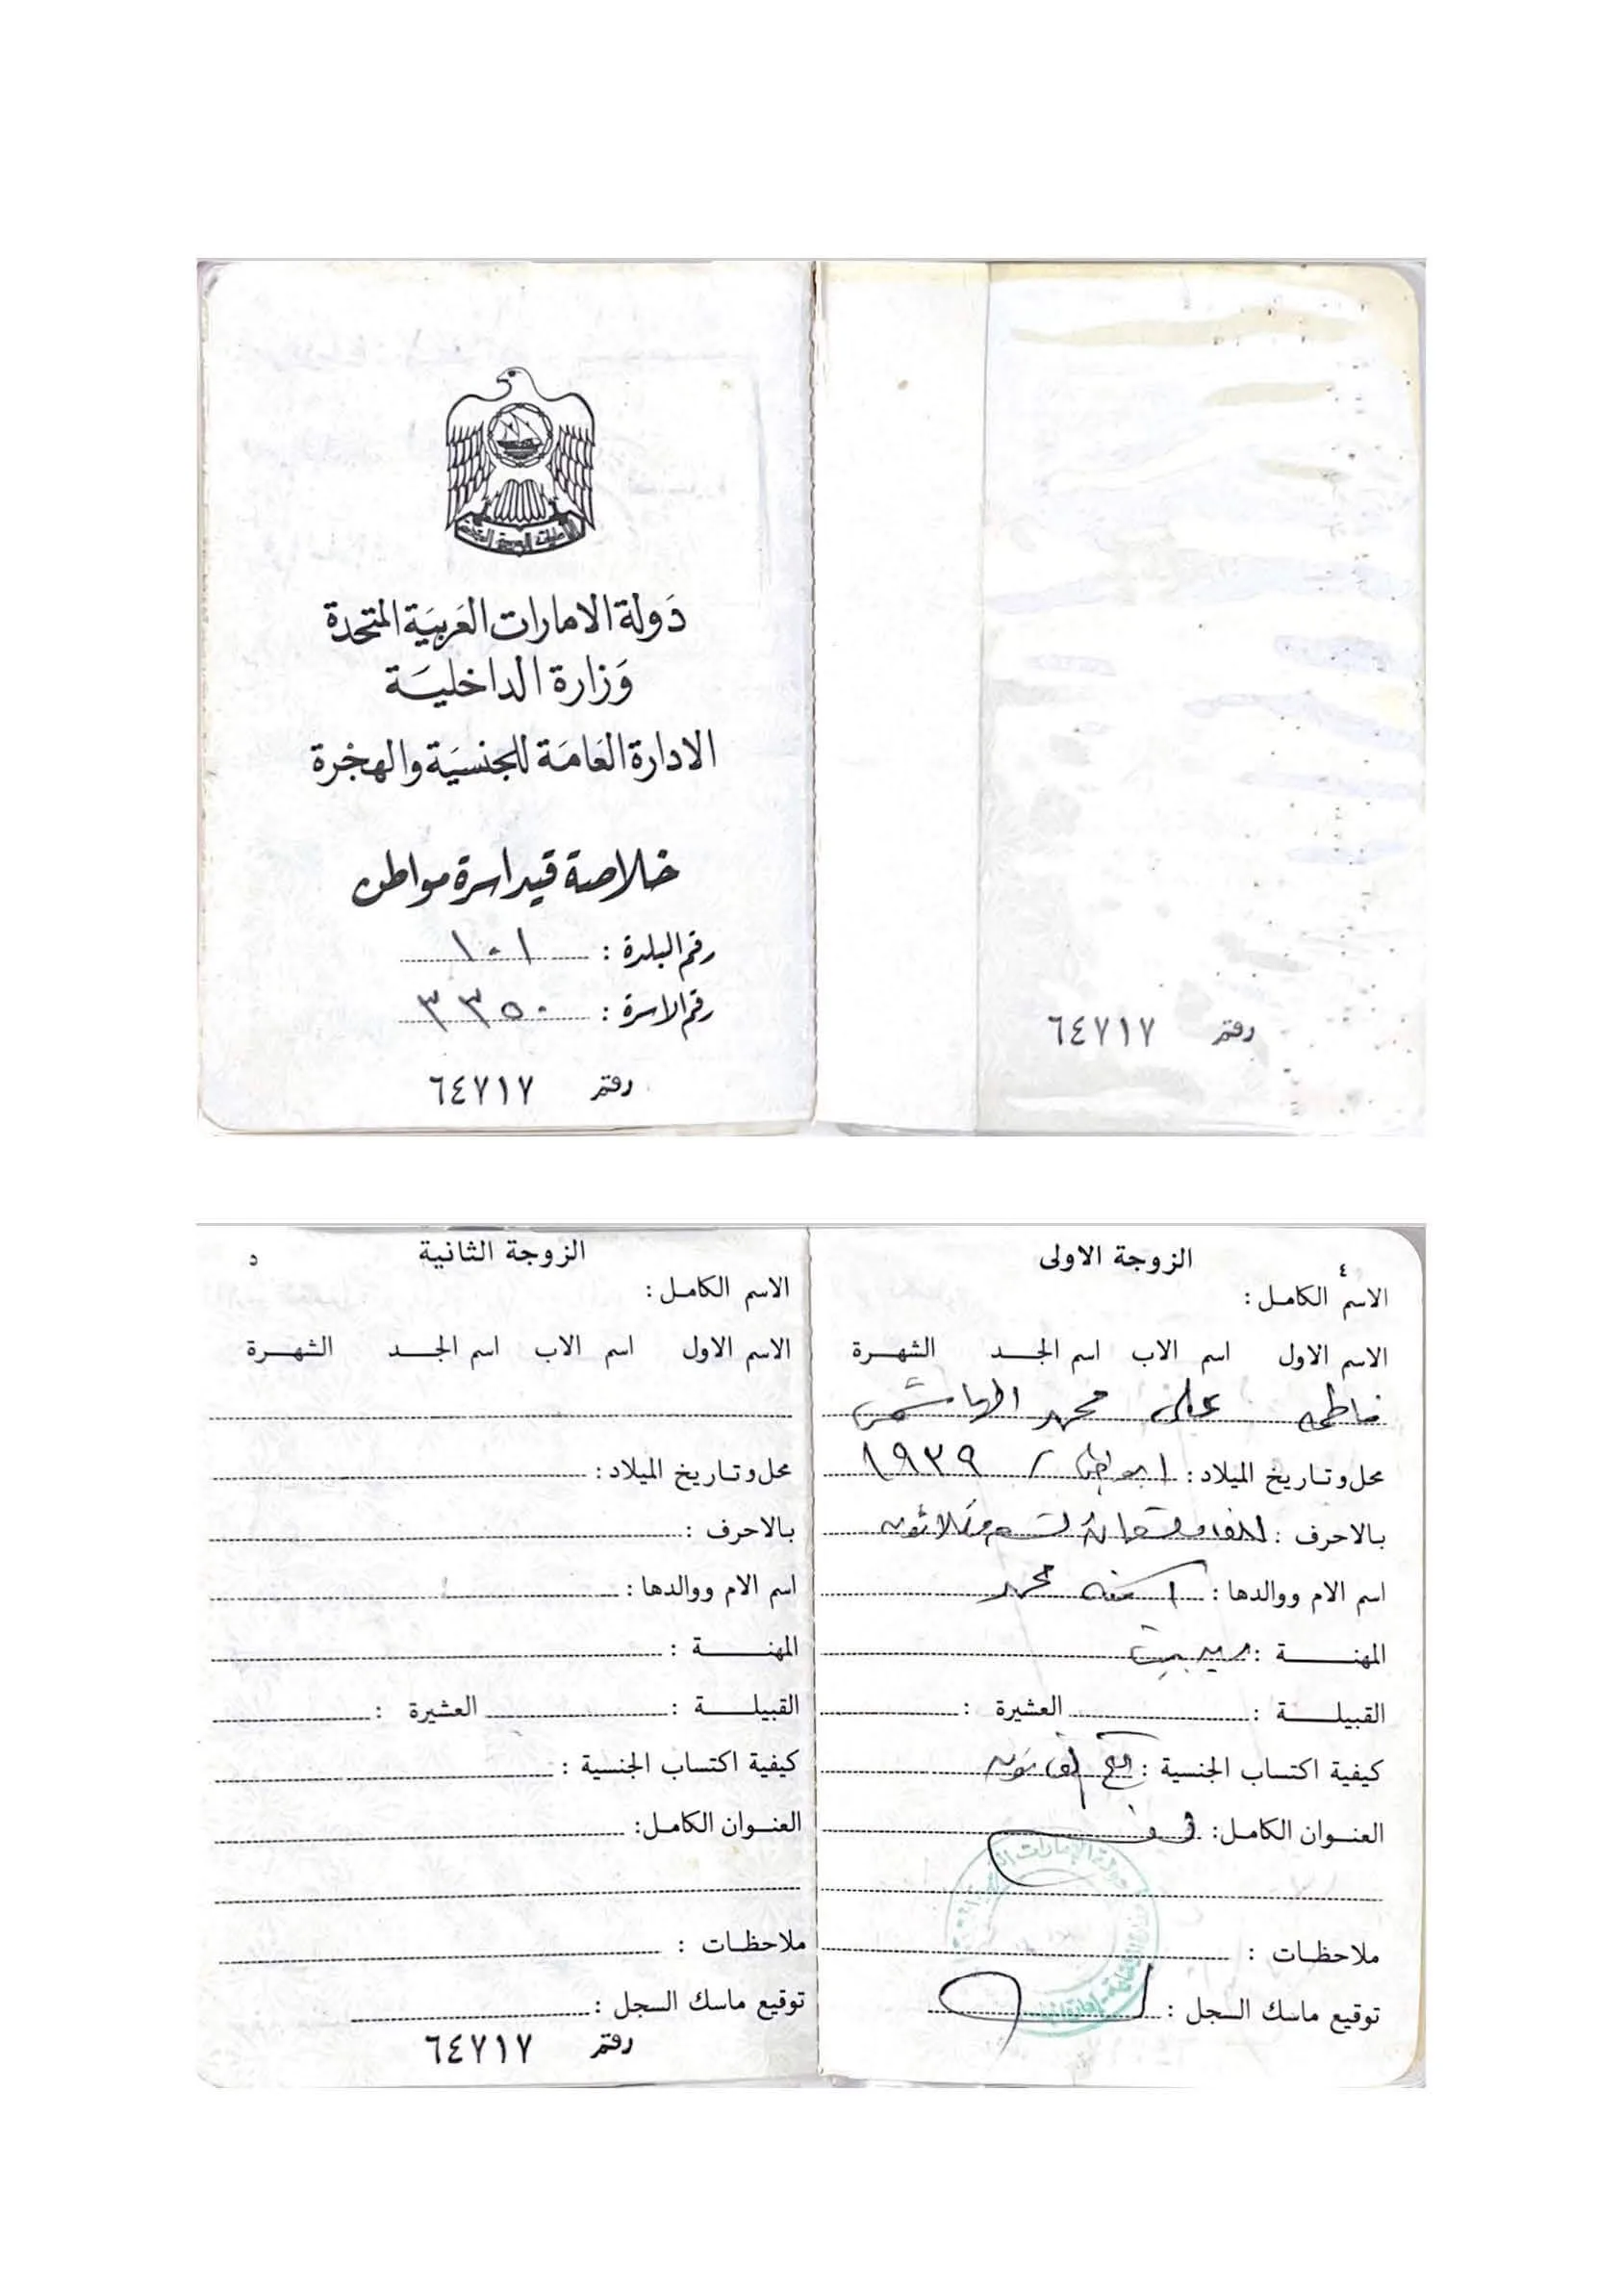 دولة الامارات العربية المتحدة
وزارة الداخلية
الادارة العامة للجنسية والهجرة
خلاصة قيد اسرة مواطن
رقم البلدة : ١٠١
رقم الاسرة : ٣٣٥٠
رقم ٦٤٧١٧
رقم ٦٤٧١٧
٤
الزوجة الاولى
الاسم الكامل :
الاسم الاول اسم الاب اسم الجد الشهرة
فاطمه علي محمد الهاشمي
محل وتاريخ الميلاد : ابوظبي / ١٩٣٩
بالاحرف : الف وتسعمائة تسع وثلاثون
اسم الام ووالدها : امنه محمد
المهنة : ربه بيت
القبيلة : العشيرة :
كيفية اكتساب الجنسية :
العنوان الكامل :
ملاحظات :
توقيع ماسك السجل :
٥
الزوجة الثانية
الاسم الكامل :
الاسم الاول اسم الاب اسم الجد الشهرة
محل وتاريخ الميلاد :
بالاحرف :
اسم الام ووالدها :
المهنة :
القبيلة : العشيرة :
كيفية اكتساب الجنسية :
العنوان الكامل :
ملاحظات :
توقيع ماسك السجل :
رقم ٦٤٧١٧